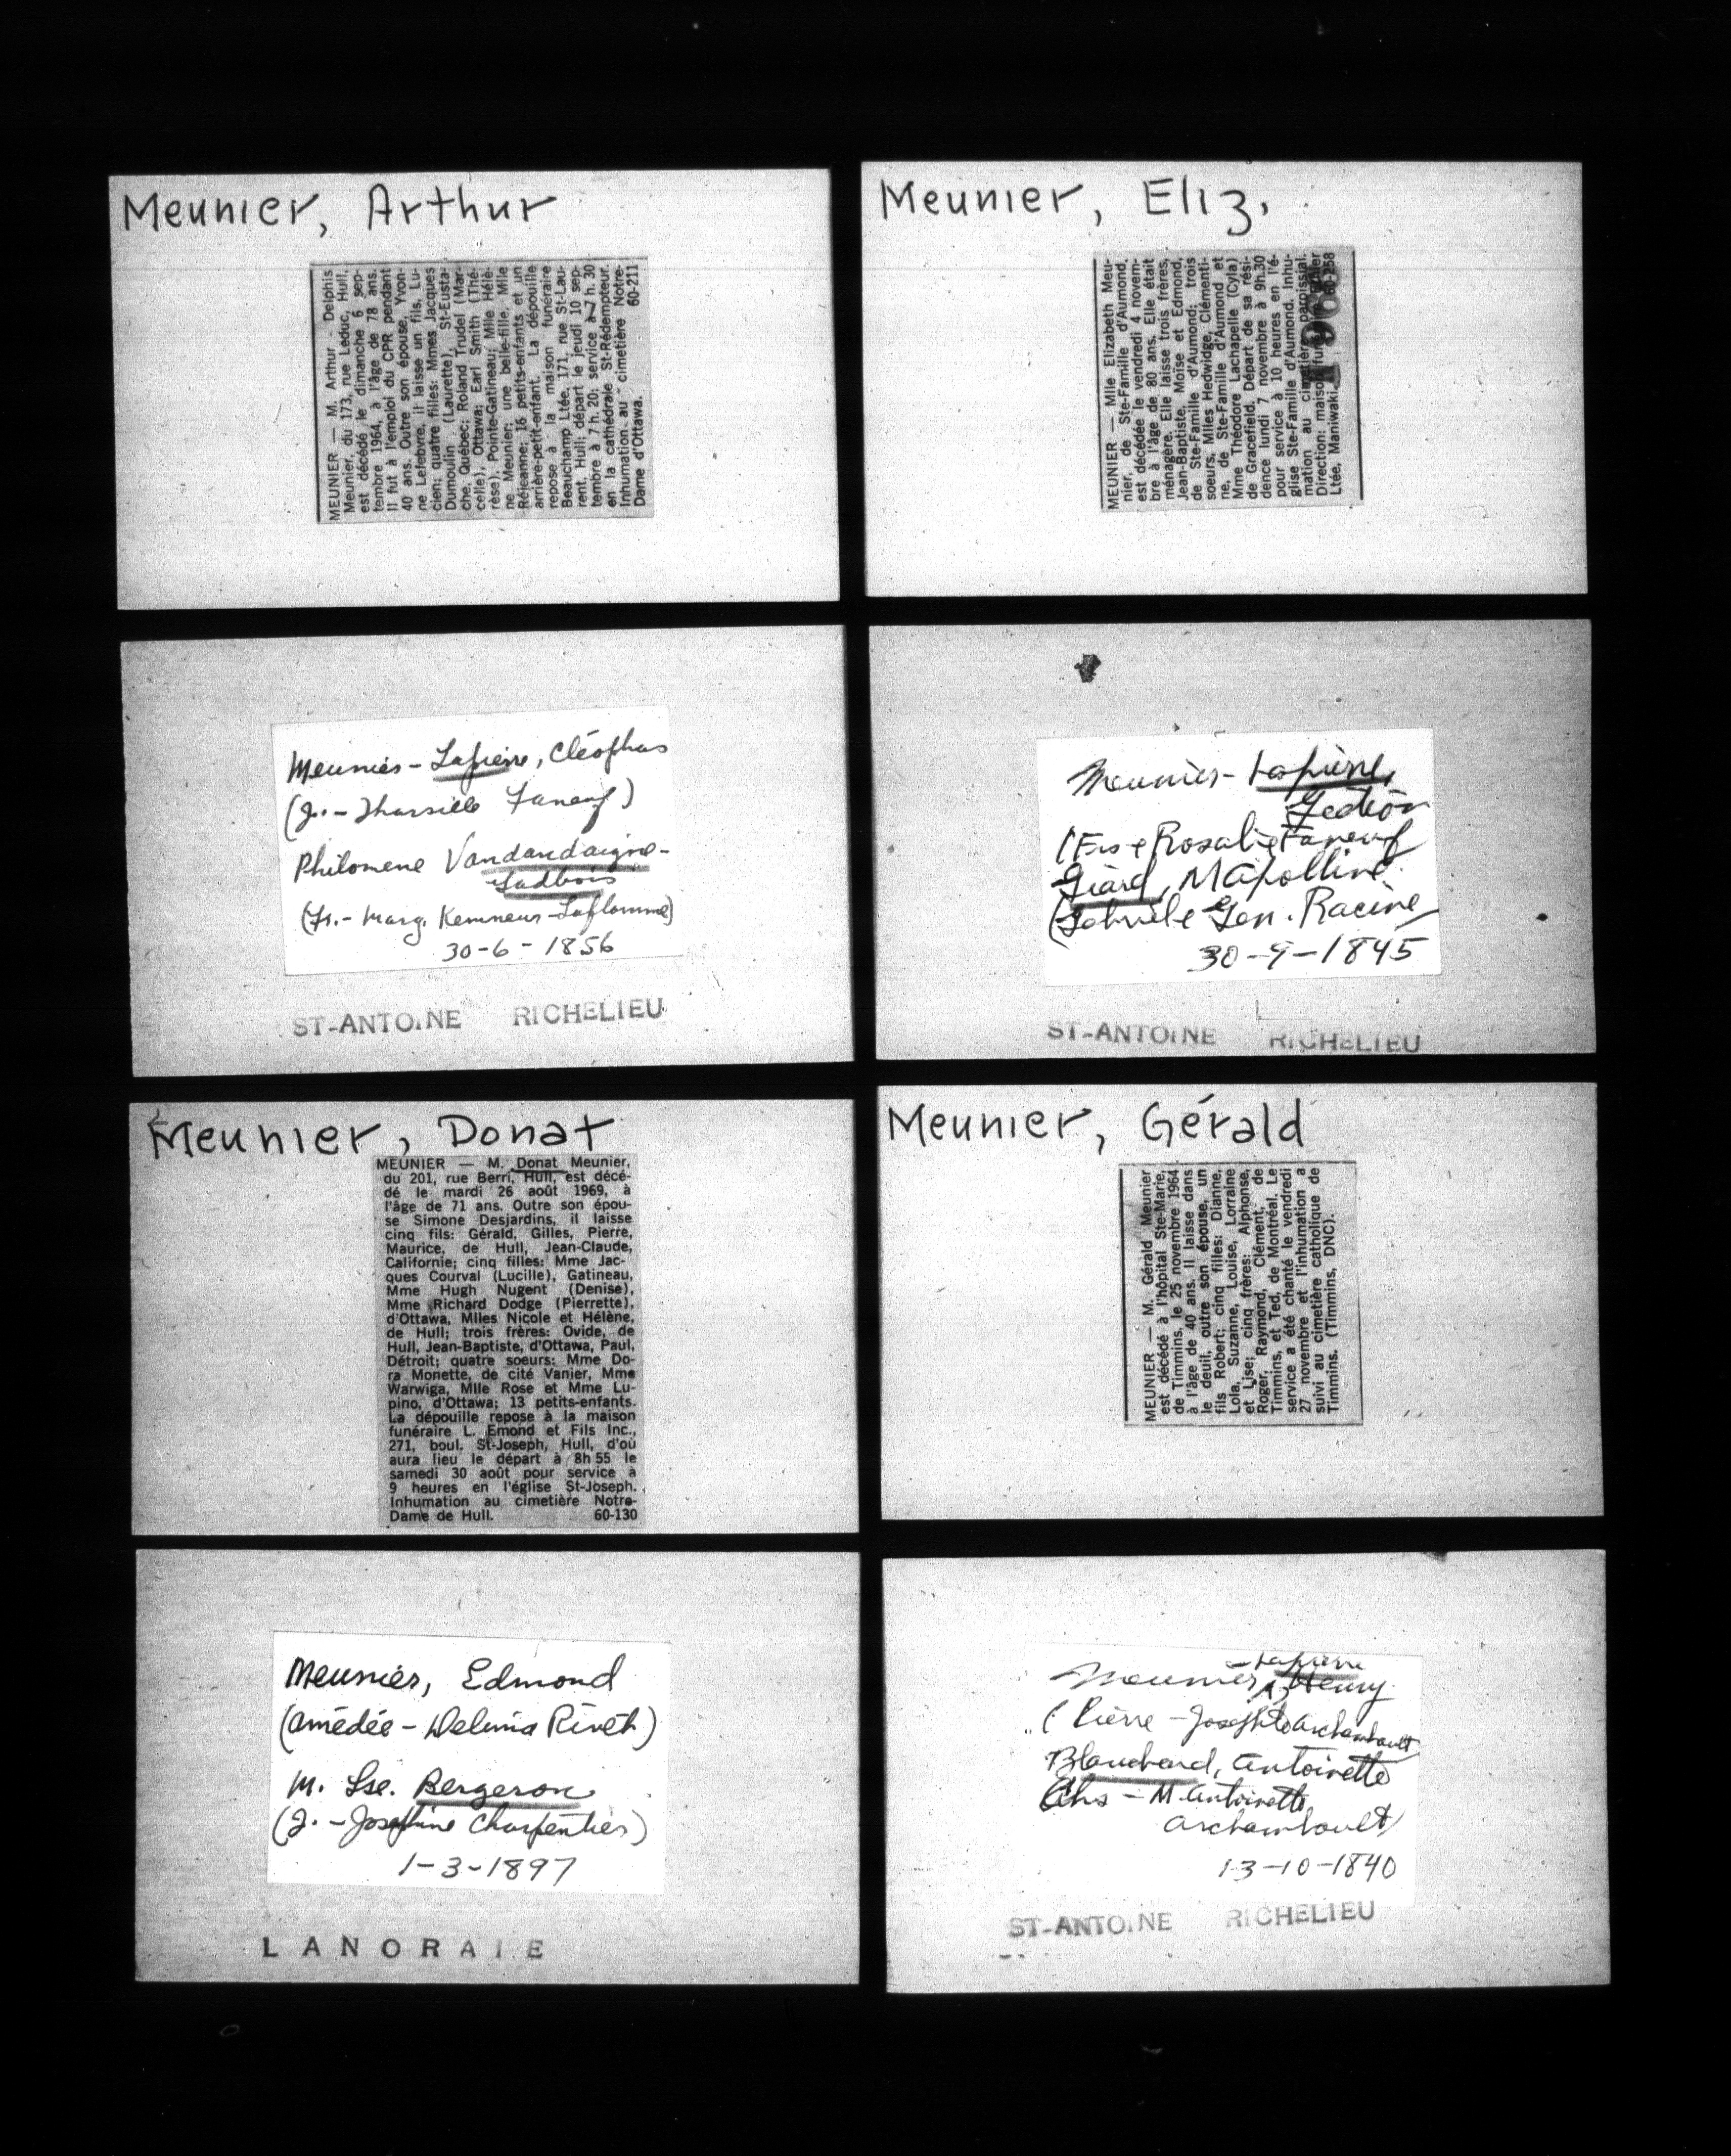 Meunier, Arthur
MEUNIER — M. Arthur - Delphis
Meunier, du 173, rue Leduc, Hull,
est décédé le dimanche 6 sep-
tembre 1964, à l'âge de 78 ans.
Il fut à l'emploi du CPR pendant
40 ans. Outre son épouse, Yvon-
ne Lefebvre, il laisse un fils, Lu-
cien; quatre filles: Mmes Jacques
Dumoulin (Laurette), St-Eusta-
che, Québec; Roland Trudel (Mar-
celle), Ottawa; Earl Smith (Thé-
rèse), Pointe-Gatineau; Mlle Hélè-
ne Meunier; une belle-fille, Mlle
Réjeanne; 16 petits-enfants et un
arrière-petit-enfant. La dépouille
repose à la maison funéraire
Beauchamp Ltée, 171, rue St-Lau-
rent, Hull; départ le jeudi 10 sep-
tembre à 7 h. 20; service à 7 h. 30
en la cathédrale St-Rédempteur.
Inhumation au cimetière Notre-
Dame d'Ottawa. 60-211
Meunier, Eliz.
MEUNIER — Mlle Elizabeth Meu-
nier, de Ste-Famille d'Aumond,
est décédée le vendredi 4 novem-
bre à l'âge de 80 ans. Elle était
ménagère. Elle laisse trois frères,
Jean-Baptiste, Moïse et Edmond,
de Ste-Famille d'Aumond; trois
soeurs, Mlles Hedwidge, Clémenti-
ne, de Ste-Famille d'Aumond et
Mme Théodore Lachapelle (Cyla)
de Gracefield. Départ de sa rési-
dence lundi 7 novembre à 9h.30
pour service à 10 heures en l'é-
glise Ste-Famille d'Aumond. Inhu-
mation au cimetière paroissial.
Direction: maison
Ltée, Maniwaki. 60-258
Meunier-Lapierre, Cléophas
(J.-Tharsille Faneuf)
Philomene Vandandaigne-
Gadbois
(Fr.- Marg. Kemneur-Laflamme)
30-6-1856
ST-ANTOINE RICHELIEU
Meunier-Lapierre,
Gédéon
(Frs e Rosalie Faneuf
Giard, M Apolline
(Gabriel e Gen. Racine
30-9-1845
ST-ANTOINE RICHELIEU
Meunier, Donat
MEUNIER — M. Donat Meunier,
du 201, rue Berri, Hull, est décé-
dé le mardi 26 août 1969, à
l'âge de 71 ans. Outre son épou-
se Simone Desjardins, il laisse
cinq fils: Gérald, Gilles, Pierre,
Maurice, de Hull, Jean-Claude,
Californie; cinq filles: Mme Jac-
ques Courval (Lucille), Gatineau,
Mme Hugh Nugent (Denise),
Mme Richard Dodge (Pierrette),
d'Ottawa, Mlles Nicole et Hélène,
de Hull; trois frères: Ovide, de
Hull, Jean-Baptiste, d'Ottawa, Paul,
Détroit; quatre soeurs: Mme Do-
ra Monette, de cité Vanier, Mme
Warwiga, Mlle Rose et Mme Lu-
pino, d'Ottawa; 13 petits-enfants.
La dépouille repose à la maison
funéraire L. Emond et Fils Inc.,
271, boul. St-Joseph, Hull, d'où
aura lieu le départ à 8h 55 le
samedi 30 août pour service à
9 heures en l'église St-Joseph.
Inhumation au cimetière Notre-
Dame de Hull. 60-130
Meunier, Gérald
MEUNIER — M. Gérald Meunier
est décédé à l'hôpital Ste-Marie,
de Timmins, le 25 novembre 1964
à l'âge de 40 ans. Il laisse dans
le deuil, outre son épouse, un
fils Robert; cinq filles: Dianne,
Lola, Suzanne, Louise, Lorraine
et Lise; cinq frères: Alphonse,
Roger, Raymond, Clément, de
Timmins, et Ted, de Montréal. Le
service a été chanté le vendredi
27 novembre et l'inhumation a
suivi au cimetière catholique de
Timmins. (Timmins, DNC).
Meunier, Edmond
(Amédée - Delima Rivet)
M. Lse. Bergeron
(J. - Josephine Charpentier)
1-3-1897
LANORAIE
-Lapierre
Meunier, Henry
(Pierre - Josephte Archambault
Blanchard, Antoinette
Chs - M. Antoinette
Archambault)
13-10-1840
ST-ANTOINE RICHELIEU